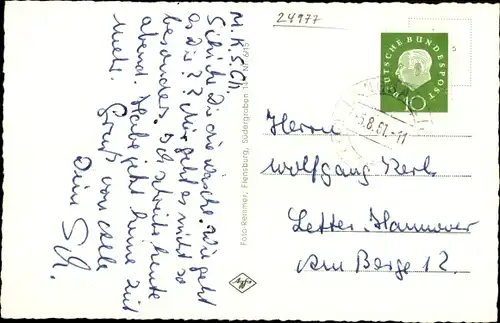 24977
M. K. Sch.
Schicke Dir die Wäsche. Wie geht
es Dir?? Mir geht es nicht so
besonders. Ich schreibe heute
abend. Habe jetzt keine Zeit
mehr.
Gruß von
Dein Sch.
Foto-Remmer, Flensburg, Südergraben 14 Nr. 615
DEUTSCHE BUNDESPOST
10
.8.61.-11
Herrn
Wolfgang Kerl
Letter Hannover
Am Berge 12.